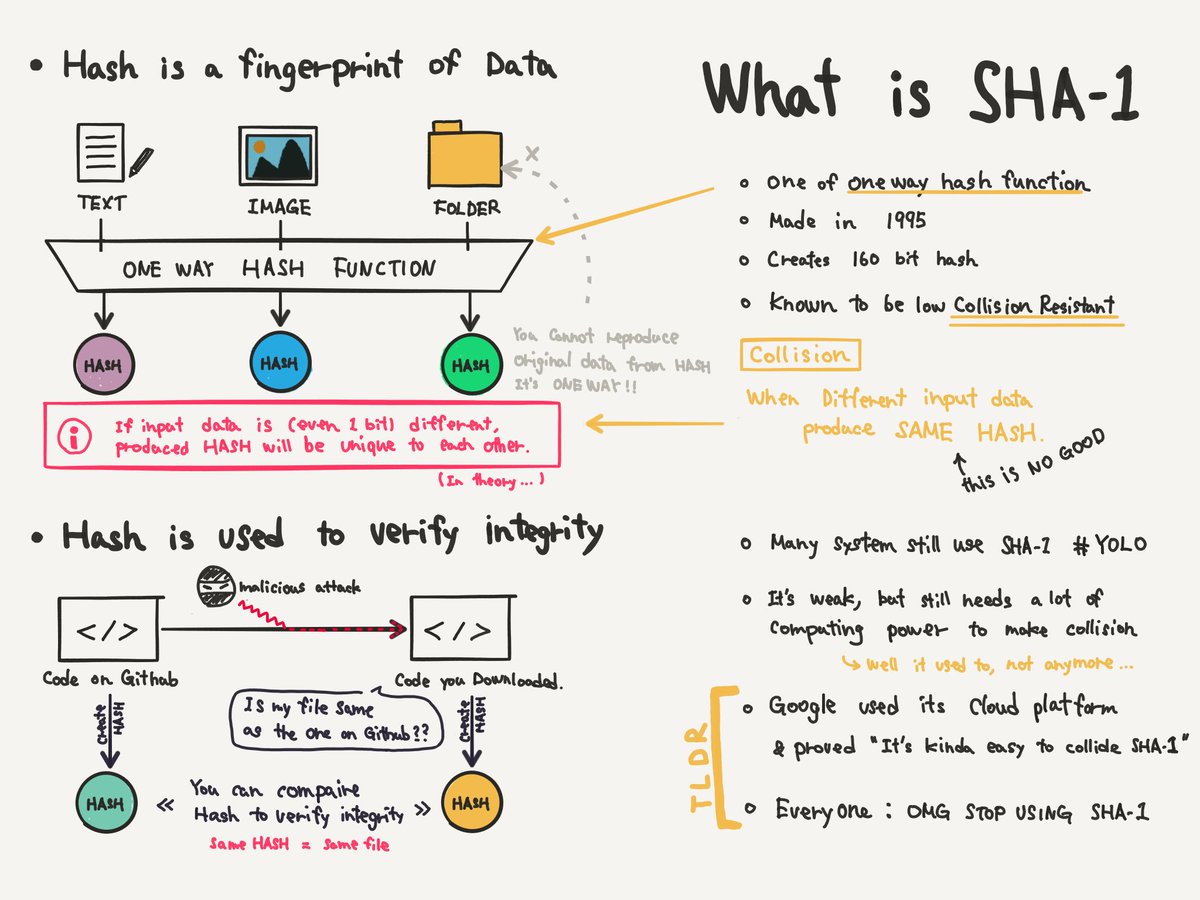 • Hash is a fingerprint of Data
TEXT
IMAGE
FOLDER
x
ONE WAY HASH FUNCTION
HASH
HASH
HASH
You cannot reproduce
Original data from HASH
It's ONE WAY!!
i
If input data is (even 1 bit) different,
produced HASH will be unique to each other.
(In theory...)
• Hash is used to verify integrity
malicious attack
</>
</>
Code on Github
Code you Downloaded.
Create
HASH
Is my file same
as the one on Github??
Create
HASH
HASH
« You can compaire
Hash to verify integrity »
HASH
Same HASH = Same file
What is SHA-1
One of one way hash function
Made in 1995
Creates 160 bit hash
Known to be low Collision Resistant
Collision
When Different input data
produce SAME HASH.
this is NO GOOD
Many system still use SHA-1 #YOLO
It's weak, but still needs a lot of
computing power to make collision
well it used to, not anymore...
TLDR
Google used its Cloud platform
& proved "It's kinda easy to collide SHA-1"
Everyone : OMG STOP USING SHA-1